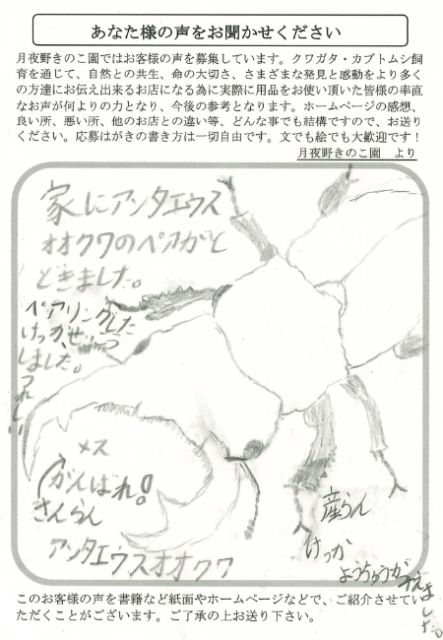 あなた様の声をお聞かせください
月夜野きのこ園ではお客様の声を募集しています。クワガタ・カブトムシ飼
育を通じて、自然との共生、命の大切さ、さまざまな発見と感動をより多く
の方達にお伝え出来るお店になる為に実際に用品をお使い頂いた皆様の率直
なお声が何よりの力となり、今後の参考となります。ホームページの感想、
良い所、悪い所、他のお店との違い等、どんな事でも結構ですので、お送り
ください。応募はがきの書き方は一切自由です。文でも絵でも大歓迎です！
月夜野きのこ園　より
家にアンタエウス
オオクワのペアがと
どきました。
ペアリングした
けっか、せいこう
しました。
うれしい
メス
がんばれ!
さんらん
アンタエウスオオクワ
産らん
けっか
ようちゅうが
ました。
このお客様の声を書籍など紙面やホームページなどで、ご紹介させてい
ただくことがございます。ご了承の上お送り下さい。